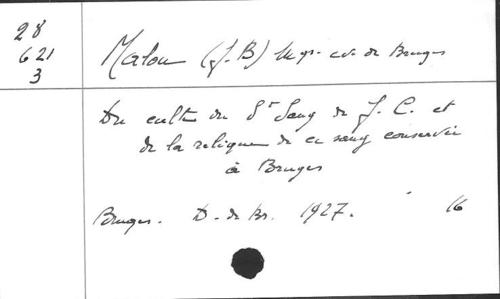 28
621
3
Malou (J.B) Mgr. év. de Bruges
Du culte du St Sang de J. C. et
de la relique de ce sang conservée
à Bruges
Bruges. D. de Br. 1927. 16